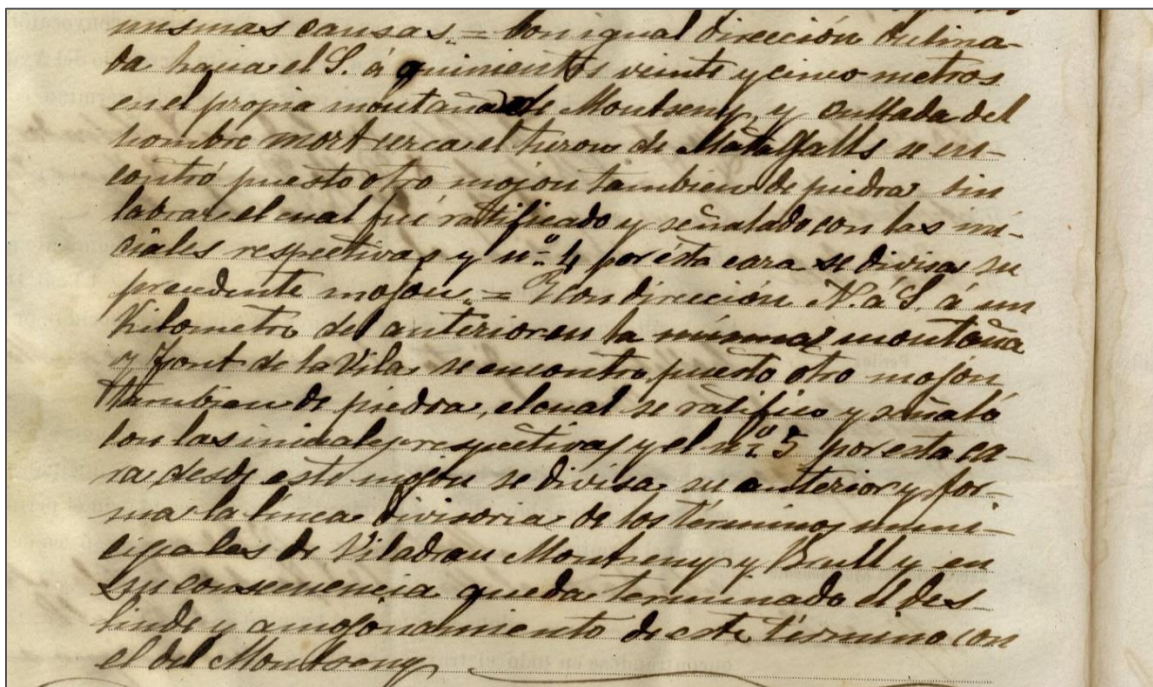 mismas causas. = Con igual dirección inclina-
da hacia el S. á quinientos veinte y cinco metros
en el propia montaña de Montseny, y collada del
hombre mort cerca el turon de Matagalls se en-
contró puesto otro mojon tambien de piedra sin
labrar el cual fué ratificado y señalado con las ini-
ciales respectivas y nº 4 por ésta cara se divisa su
precedente mojon. = Y con dirección N. á S. á un
Kilometro del anterior en la misma montaña
y font de la Vila, se encontro puesto otro mojón
tambien de piedra, el cual se ratifico y señaló
con las iniciales respectivas y el nº 5 por esta ca-
ra desde este mojón se divisa, su anterior y for-
ma la linea divisoria de los términos muni-
cipales de Viladrau Montseny y Brull y en
su consecuencia queda terminado el des-
linde y amojonamiento de este término con
el del Montseny